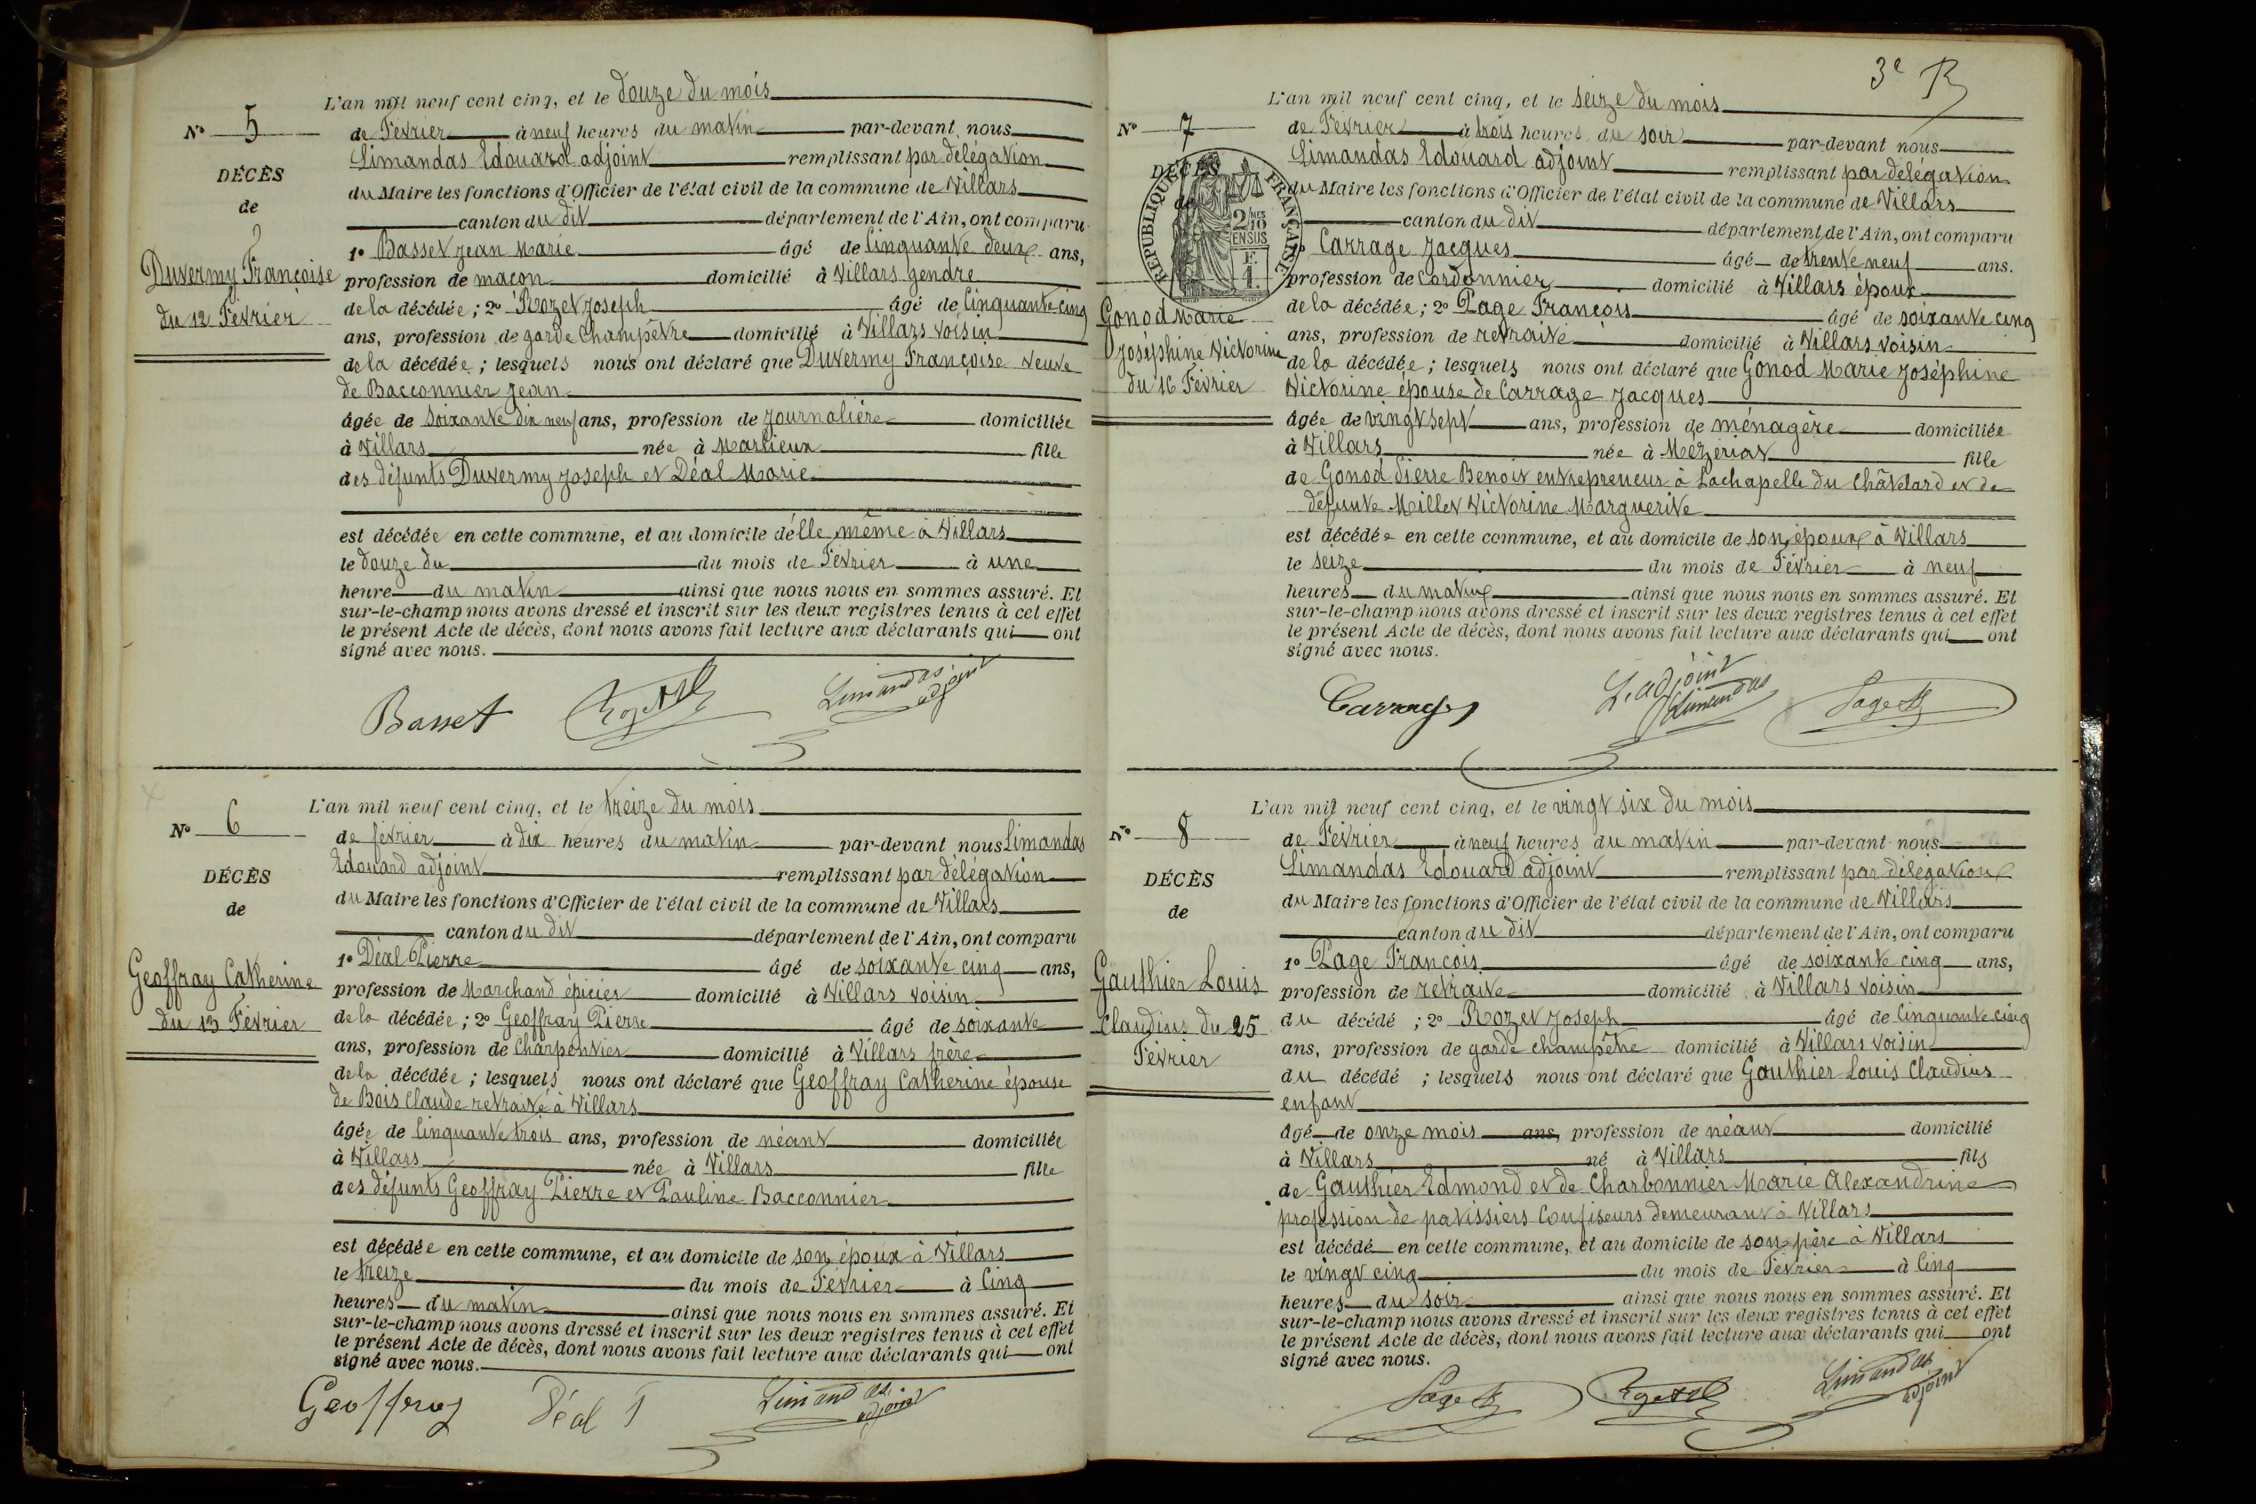 L'an mil neuf cent cinq, et le douze du mois
N° 5
de Février à neuf heures du matin par-devant nous
Limandas Edouard adjoint remplissant par délégation
DÉCÈS
du Maire les fonctions d'Officier de l'état civil de la commune de Villars
de
canton du dit département de l'Ain, ont comparu
1° Basset Jean Marie âgé de Cinquante deux ans,
Duvermy Françoise
profession de maçon domicilié à Villars gendre
du 12 Février
de la décédée; 2° Rozet Joseph âgé de Cinquante cinq
ans, profession de garde Champêtre domicilié à Villars voisin
de la décédée; lesquels nous ont déclaré que Duvermy Françoise veuve
de Bacconnier Jean
âgée de soixante dix neuf ans, profession de Journalière domiciliée
à Villars née à Marlieux fille
des défunts Duvermy Joseph et Déal Marie
est décédée en cette commune, et au domicile d'élle même à Villars
le douze du du mois de Février à une
heure du matin ainsi que nous nous en sommes assuré. Et
sur-le-champ nous avons dressé et inscrit sur les deux registres tenus à cet effet
le présent Acte de décès, dont nous avons fait lecture aux déclarants qui ont
signé avec nous.
Basset Rozet Limandas
adjoint
L'an mil neuf cent cinq, et le treize du mois
N° 6
de février à dix heures du matin par-devant nous Limandas
Edouard adjoint remplissant par délégation
DÉCÈS
du Maire les fonctions d'Officier de l'état civil de la commune de Villars
de
canton du dit département de l'Ain, ont comparu
1° Déal Pierre âgé de soixante cinq ans,
Geoffray Catherine
profession de Marchand épicier domicilié à Villars voisin
du 13 Février
de la décédée; 2° Geoffray Pierre âgé de soixante
ans, profession de Charpentier domicilié à Villars frère
de la décédée; lesquels nous ont déclaré que Geoffray Catherine épouse
de Bois Claude retraité à Villars
âgée de Cinquante trois ans, profession de néant domiciliée
à Villars née à Villars fille
des défunts Geoffray Pierre et Pauline Bacconnier
est décédée en cette commune, et au domicile de son époux à Villars
le treize du mois de Février à Cinq
heures du matin ainsi que nous nous en sommes assuré. Et
sur-le-champ nous avons dressé et inscrit sur les deux registres tenus à cet effet
le présent Acte de décès, dont nous avons fait lecture aux déclarants qui ont
signé avec nous.
Geoffray Déal P Limandas
adjoint
3e
L'an mil neuf cent cinq, et le seize du mois
N° 7
de Février à trois heures du soir par-devant nous
Limandas Edouard adjoint remplissant par délégation
DÉCÈS
de
RÉPUBLIQUE FRANÇAISE
2/10MES
EN SUS
F.
1.
du Maire les fonctions d'Officier de l'état civil de la commune de Villars
canton du dit département de l'Ain, ont comparu
1° Carrage Jacques âgé de trente neuf ans.
profession de Cordonnier domicilié à Villars époux
Gonod Marie
de la décédée; 2° Page François âgé de soixante cinq
Joséphine Victorine
ans, profession de retraité domicilié à Villars voisin
du 16 Février
de la décédée; lesquels nous ont déclaré que Gonod Marie Joséphine
Victorine épouse de Carrage Jacques
âgée de vingt sept ans, profession de ménagère domiciliée
à Villars née à Mézériat fille
de Gonod Pierre Benoit entrepreneur à Lachapelle du Châtelard et de
défunte Millet Victorine Marguerite
est décédée en cette commune, et au domicile de son époux à Villars
le seize du mois de Février à neuf
heures du matin ainsi que nous nous en sommes assuré. Et
sur-le-champ nous avons dressé et inscrit sur les deux registres tenus à cet effet
le présent Acte de décès, dont nous avons fait lecture aux déclarants qui ont
signé avec nous.
Carrage L'adjoint
Limandas Page
L'an mil neuf cent cinq, et le vingt six du mois
N° 8
de Février à neuf heures du matin par-devant nous
Limandas Edouard adjoint remplissant par délégation
DÉCÈS
du Maire les fonctions d'Officier de l'état civil de la commune de Villars
de
canton du dit département de l'Ain, ont comparu
1° Page François âgé de soixante cinq ans,
Gauthier Louis
profession de retraité domicilié à Villars voisin
Claudius du 25
du décédé; 2° Rozet Joseph âgé de Cinquante cinq
Février
ans, profession de garde champêtre domicilié à Villars voisin
du décédé; lesquels nous ont déclaré que Gauthier Louis Claudius
enfant
âgé de onze mois ans, profession de néant domicilié
à Villars né à Villars fils
de Gauthier Edmond et de Charbonnier Marie Alexandrine
profession de patissiers Confiseurs demeurant à Villars
est décédé en cette commune, et au domicile de son père à Villars
le vingt cinq du mois de Février à Cinq
heures du soir ainsi que nous nous en sommes assuré. Et
sur-le-champ nous avons dressé et inscrit sur les deux registres tenus à cet effet
le présent Acte de décès, dont nous avons fait lecture aux déclarants qui ont
signé avec nous.
Page Rozet Limandas
adjoint